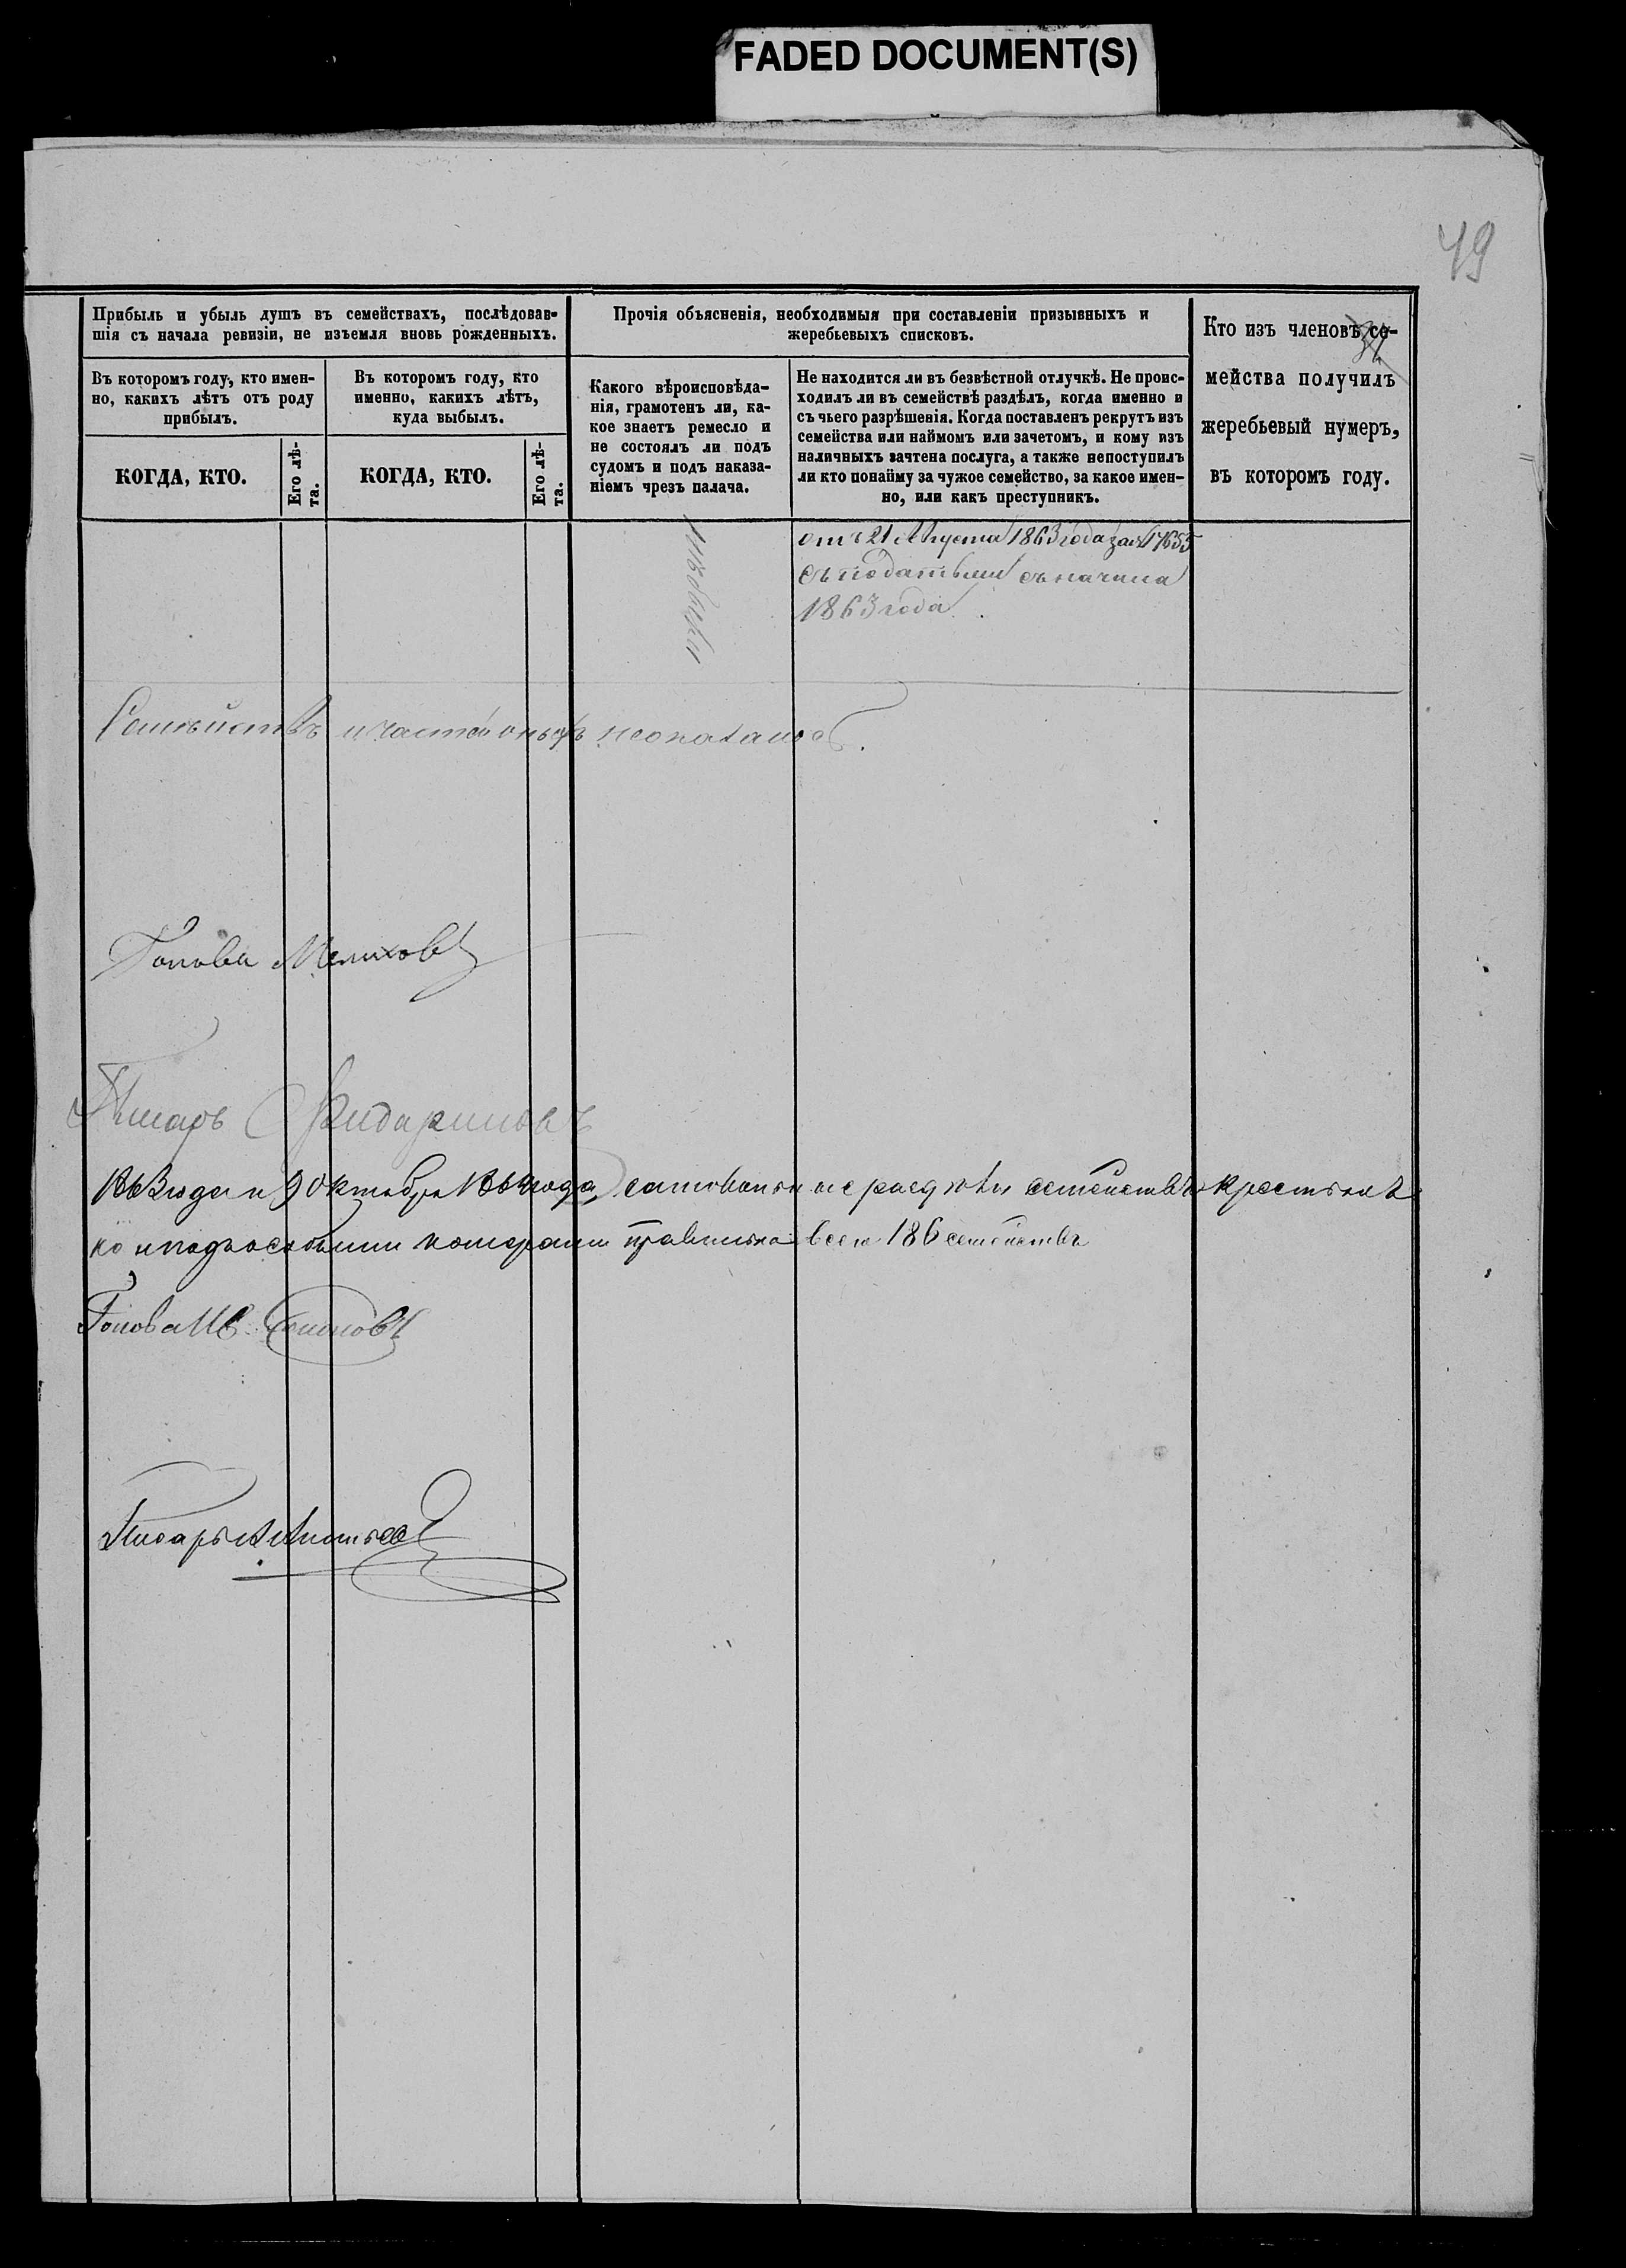 FADED DOCUMENT(S)
49
Прибыль и убыль душъ въ семействахъ, послѣдовав-
шія съ начала ревизіи, не изъемля вновь рожденныхъ.
Прочія объясненія, необходимыя при составленіи призывныхъ и
жеребьевыхъ списковъ.
Кто изъ членовъ се-
мейства получилъ
жеребьевый нумеръ,
въ которомъ году.
Въ которомъ году, кто имен-
но, какихъ лѣтъ отъ роду
прибылъ.
Въ которомъ году, кто
именно, какихъ лѣтъ,
куда выбылъ.
Какого вѣроисповѣда-
нія, грамотенъ ли, ка-
кое знаетъ ремесло и
не состоялъ ли подъ
судомъ и подъ наказа-
ніемъ чрезъ палача.
Не находится ли въ безвѣстной отлучкѣ. Не проис-
ходилъ ли въ семействѣ раздѣлъ, когда именно и
съ чьего разрѣшенія. Когда поставленъ рекрутъ изъ
семейства или наймомъ или зачетомъ, и кому изъ
наличныхъ зачтена послуга, а также непоступилъ
ли кто понайму за чужое семейство, за какое имен-
но, или какъ преступникъ.
КОГДА, КТО.
Его лѣ-
та.
КОГДА, КТО.
Его лѣ-
та.
отъ 21 Августа 1863 года за № 17655
съ податьми съ начала
1863 года.
Семействъ и частей оныхъ непоказано.
Голова Мелиховъ
Писарь
года и 9 Октября года, семействъ крестьянъ
но и подъ особыми номерами правильно всего 186 семействъ
Голова
Писарь